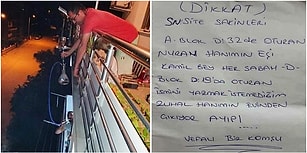 (DİKKAT)
SN SİTE SAKİNLERİ
A-BLOK D:32'DE OTURAN
NURAN HANIMIN EŞİ
KAMİL BEY HER SABAH-D-
BLOK D:19'DA OTURAN
İSMİNİ YAZMAK İSTEMEDİĞİM
ZUHAL HANIMIN EVİNDEN
ÇIKIYOR AYIP!
VEFALI BİR KOMŞU